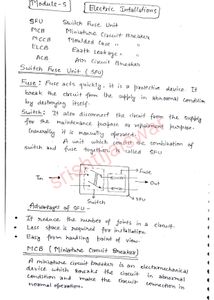 Module-5
Electric Installations
SFU Switch Fuse Unit
MCB Miniature Circuit Breaker
MCCB Moulded Case " "
ELCB Earth Leakage " "
ACB Air Circuit Breaker
Switch Fuse Unit (SFU)
Fuse: Fuse acts quickly. it is a protective device It
break the circuit from the supply in abnormal condition
by destroying itself.
Switch: It also disconnect the circuit from the supply
for the maintenance purpose or repairing purpose.
Generally it is manually operated
A unit which contain the combination of
switch and fuse together is called SFU
Fuse
In
Out
Switch
Advantages of SFU -
It reduce the number of joints in a circuit.
Less space is required for installation
Easy from handling point of view.
MCB (Miniature Circuit Breaker)
A miniature circuit breaker is an electromechanical
device which breaks the circuit in abnormal
condition and make the circuit connection in
normal operation.